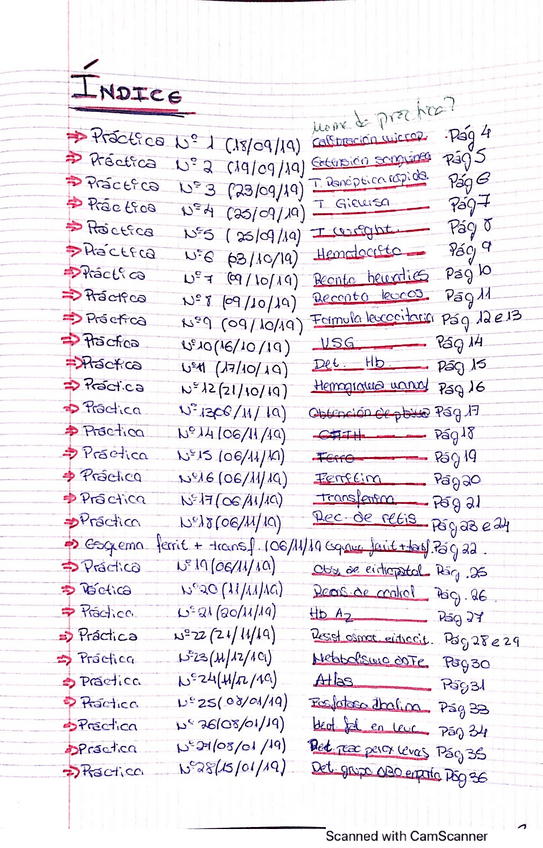 ÍNDICE
Nome da práctica?
⇒ Práctica Nº 1 (18/09/19) Calibración microp. Pág 4
⇒ Práctica Nº 2 (19/09/19) Extensión sanguínea Pág 5
⇒ Práctica Nº 3 (23/09/19) T. Panóptica rápida Pág 6
⇒ Práctica Nº 4 (25/09/19) T Giemsa Pág 7
⇒ Práctica Nº 5 (25/09/19) T Wright. Pág 8
⇒ Práctica Nº 6 (03/10/19) Hematocrito Pág 9
⇒ Práctica Nº 7 (09/10/19) Reconto hematíes Pág 10
⇒ Práctica Nº 8 (09/10/19) Reconto leucos Pág 11
⇒ Práctica Nº 9 (09/10/19) Formula leucocitaria Pág 12 e 13
⇒ Práctica Nº 10 (16/10/19) VSG Pág 14
⇒ Práctica Nº 11 (17/10/19) Det. Hb Pág 15
⇒ Práctica Nº 12 (21/10/19) Hemograma manual Pág 16
⇒ Práctica Nº 13 (06/11/19) Obtención de Pág 17
⇒ Práctica Nº 14 (06/11/19) Pág 18
⇒ Práctica Nº 15 (06/11/19) Ferro Pág 19
⇒ Práctica Nº 16 (06/11/19) Ferritina Pág 20
⇒ Práctica Nº 17 (06/11/19) Transferrina Pág 21
⇒ Práctica Nº 18 (06/11/19) Rec. de retis Pág 23 e 24
⇒ Esquema ferrit + transf. (06/11/19) Esquema ferit + transf Pág 22.
⇒ Práctica Nº 19 (06/11/19) Obs. de eritropatol Pág. 25
⇒ Práctica Nº 20 (11/11/19) de control Pág. 26
⇒ Práctica Nº 21 (20/11/19) Hb A2 Pág 27
⇒ Práctica Nº 22 (21/11/19) Resist osmot. eritrocit. Pág 28 e 29
⇒ Práctica Nº 23 (11/12/19) Metabolismo do Fe Pág 30
⇒ Práctica Nº 24 (11/12/19) Atlas Pág 31
⇒ Práctica Nº 25 (08/01/19) Fosfatasa alcalina Pág 33
⇒ Práctica Nº 26 (08/01/19) en leuc Pág 34
⇒ Práctica Nº 27 (08/01/19) Det reac perox leucos Pág 35
⇒ Práctica Nº 28 (15/01/19) Det. grupo ABO Pág 36
Scanned with CamScanner